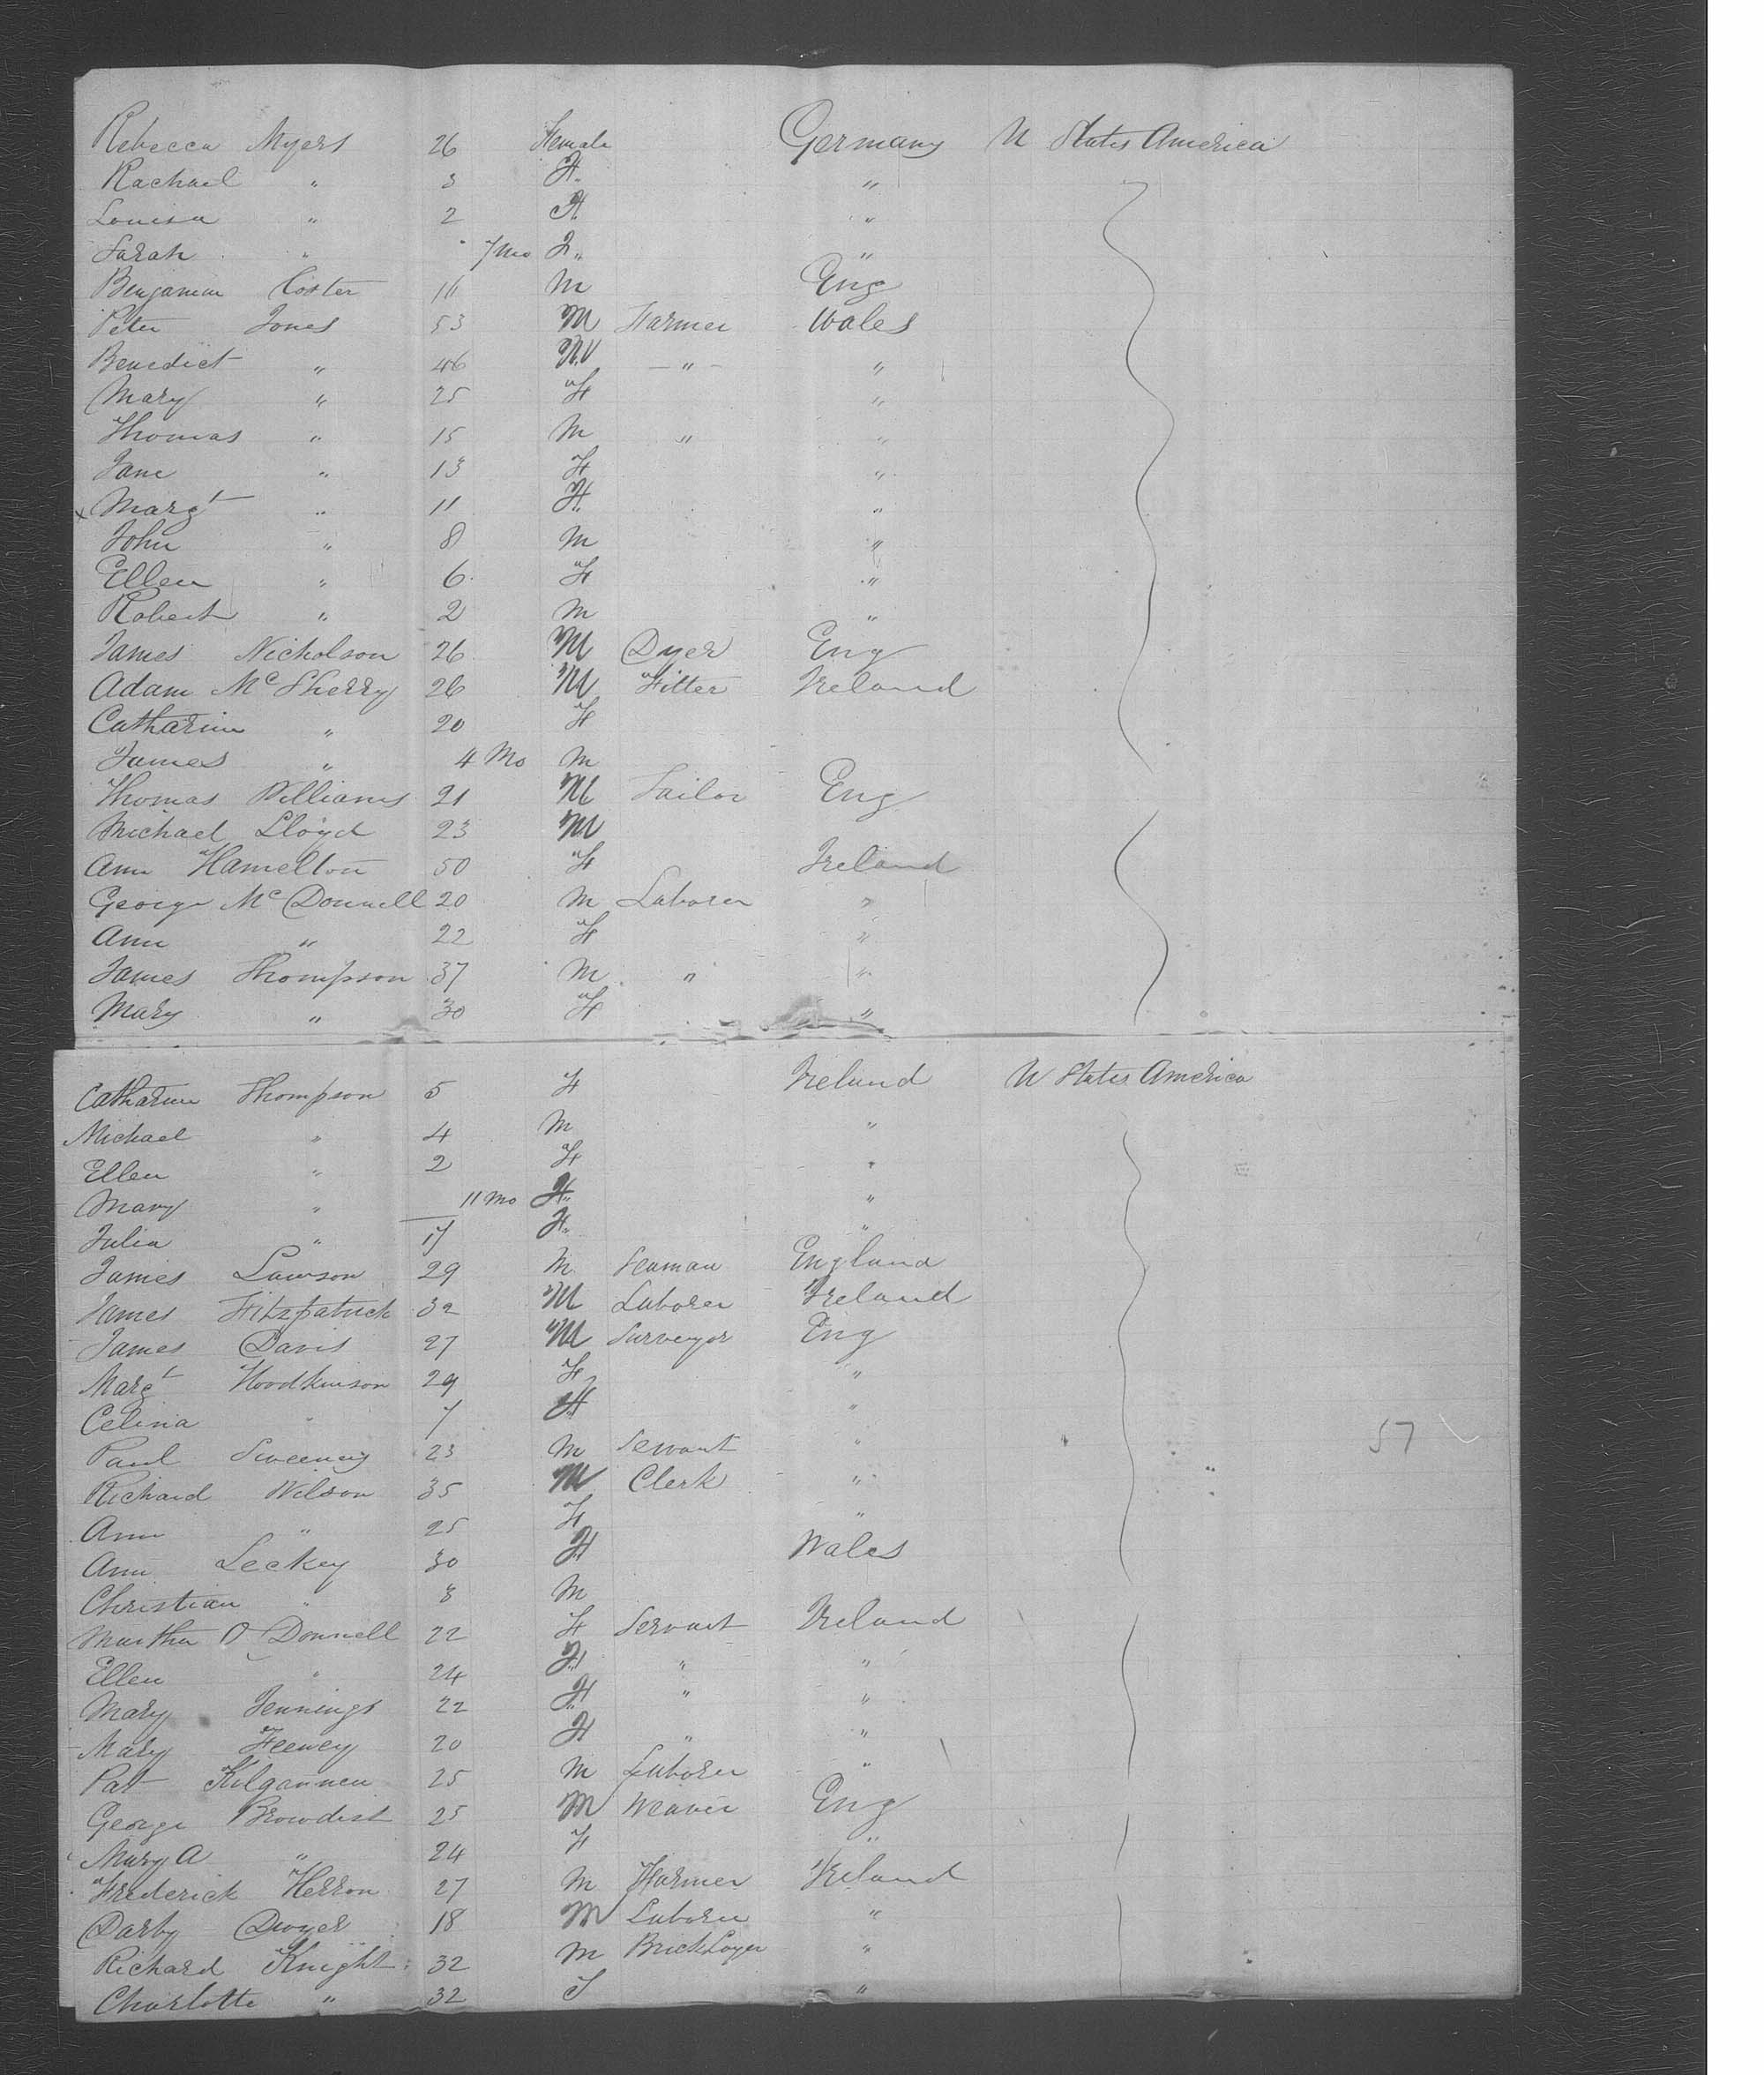 Rebecca Myers 26 Female Germany U States America
Rachael " 3 F. "
Louisa " 2 F. "
Sarah " 7 Mo F " "
Benjamin Coster M Eng
Peter Jones 53 M Farmer Wales
Benedict " 46 M - " - "
Mary " 25 F "
Thomas " 15 M " "
Jane " 13 F "
x Margt " 11 F "
John " 8 M "
Ellen " 6 F "
Robert " 2 M "
James Nicholson 26 M Dyer Eng
Adam McSherry 26 M Fitter Ireland
Catharine " 20 F
James " 4 Mo M
Thomas Williams 21 M Tailor Eng
Michael Lloyd 23 M
Ann Hamelton 50 F Ireland
George McDonnell 20 M Laborer "
Ann " 22 F "
James Thompson 37 M " "
Mary " 30 F "
Catharine Thompson 5 F Ireland U States America
Michael " 4 M "
Ellen " 2 F "
Mary " 11 Mo F "
Julia " 17 F "
James Lawson 29 M Seaman England
James Fitzpatrick 32 M Laborer Ireland
James Davis 27 M Surveyor Eng
Margt Hoodkinson 29 F "
Celina " 7 F "
Paul Sweeney 23 M Servant " 57
Richard Wilson 35 M Clerk "
Ann " 25 F "
Ann Leckey 30 F Wales
Christian " 3 M
Martha O Donnell 22 F Servant Ireland
Ellen " 24 F " "
Mary Jennings 22 F " "
Mary Feeney 20 F " "
Pat Kilgannen 25 M Laborer "
George Browdist 25 M Weaver Eng
Mary A " 24 F "
Frederick Herron 27 M Farmer Ireland
Darby Dwyer 18 M Laborer "
Richard Knight 32 M BrickLayer "
Charlotte " 32 F "